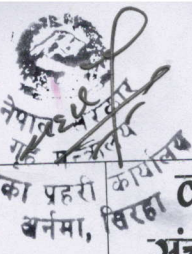 नेपाल सरकार
गृह मन्त्रालय
का प्रहरी कार्यालय
अर्नमा, सिरहा